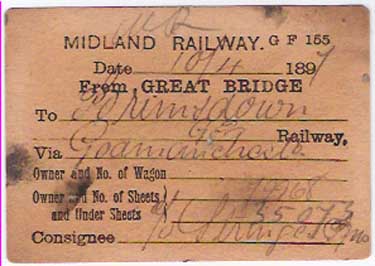 MIDLAND RAILWAY. G F 155
Date 10/4 1897
From GREAT BRIDGE
To Brimsdown
GER Railway,
Via Godmanchester
Owner and No. of Wagon
Owner and No. of Sheets
and Under Sheets 35973
Consignee